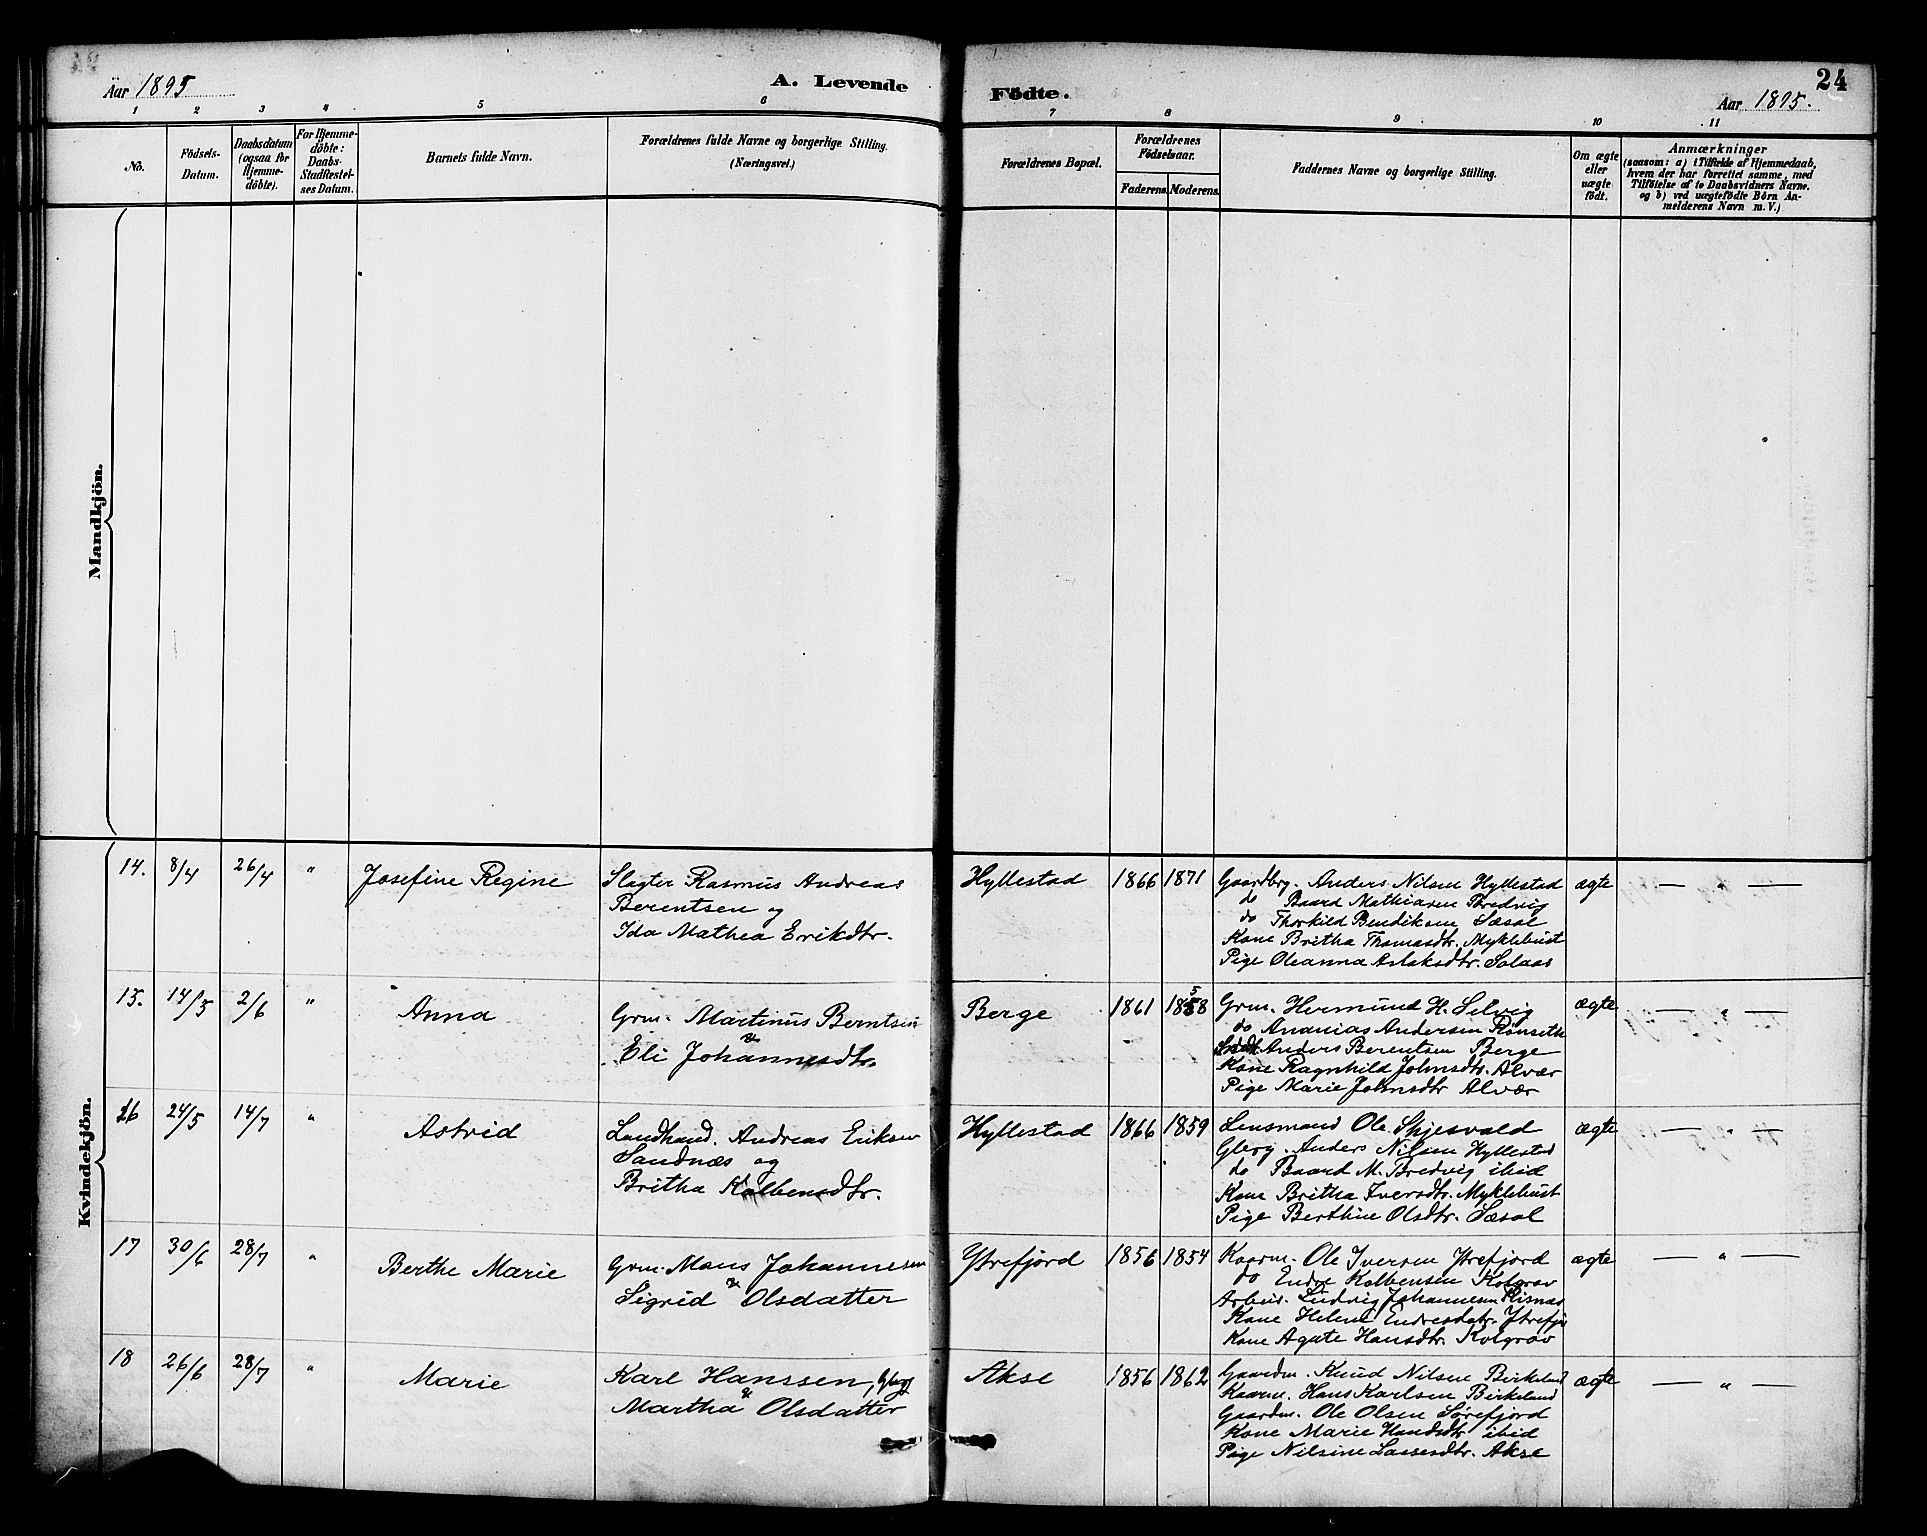 Aar 1895
A. Levende
Födte.
24
Aar 1895.
1 2 3 4 5 6 7 8 9 10 11
No.
Födsels-
Datum.
Daabsdatum
(ogsaa for
Hjemme-
döbte).
For Hjemme-
döbte:
Daabs-
Stadfæstel-
ses Datum.
Barnets fulde Navn.
Forældrenes fulde Navne og borgerlige Stilling.
(Næringsvei.)
Forældrenes Bopæl.
Forældrenes
Födselsaar.
Faderens.
Moderens.
Faddernes Navne og borgerlige Stilling.
Om ægte
eller
uægte
födt.
Anmærkninger
(saasom: a) i Tilfælde af Hjemmedaab,
hvem der har forrettet samme, med
Tilföielse af to Daabsvidners Navne.
og b) ved uægtefödte Börn An-
melderens Navn m. V.)
Mandkjön.
Kvindekjön.
14. 8/4 26/4 " Josefine Regine
Slagter Rasmus Andreas
Berentsen og
Ida Mathea Erikdtr.
Hyllestad 1866 1871
Gaardbrg. Anders Nilsen Hyllestad
do Baard Mathiasen Bredvig
do Thorkild Bendiksen Sæsol
Kone Britha Thomasdtr. Myklebust
Pige Oleanna Aslaksdtr. Solaas
ægte — " —
15. 14/5 2/6 " Anna
Grm. Martinus Berntsen
&
Eli Johannesdtr.
Berge 1861 1858
Grm. Hermund H. Selvig
do Ananias Andersen Rönseth
Anders Berentsen Berge
Kone Ragnhild Johnsdtr. Alvær
Pige Marie Johnsdtr Alvær
ægte — " —
16 24/5 14/7 " Astrid
Landhand. Andreas Eriksen
Sandnæs og
Britha Kolbensdtr.
Hyllestad 1866 1859
Lensmand Ole Skjesvold
Gbrg. Anders Nilsen Hyllestad
do Baard M. Bredvig ibid
Kone Britha Iversdtr. Myklebust
Pige Berthine Olsdtr. Sæsol
ægte — " —
17 30/6 28/7 " Berthe Marie
Grm. Mons Johannesen
&
Sigrid Olsdatter
Ytrefjord 1856 1854
Kaarm. Ole Iversen Ytrefjord
do Endre Kolbensen Kolgrov
Arbeid. Ludvig Johannesen Risnæs
Kone Helene Endresdatr. Ytrefj
Kone Agate Hansdtr. Kolgrov
ægte — " —
18 26/6 28/7 " Marie
Karl Hanssen, Gbrg
&
Martha Olsdatter
Akse 1856 1862
Gaardm. Knud Nilsen Birkeland
Kaarm. Hans Karlsen Birkeland
Gaardm. Ole Olsen Sörefjord
Kone Marie Hansdtr ibid
Pige Nilsine Lassesdtr. Akse
ægte — " —